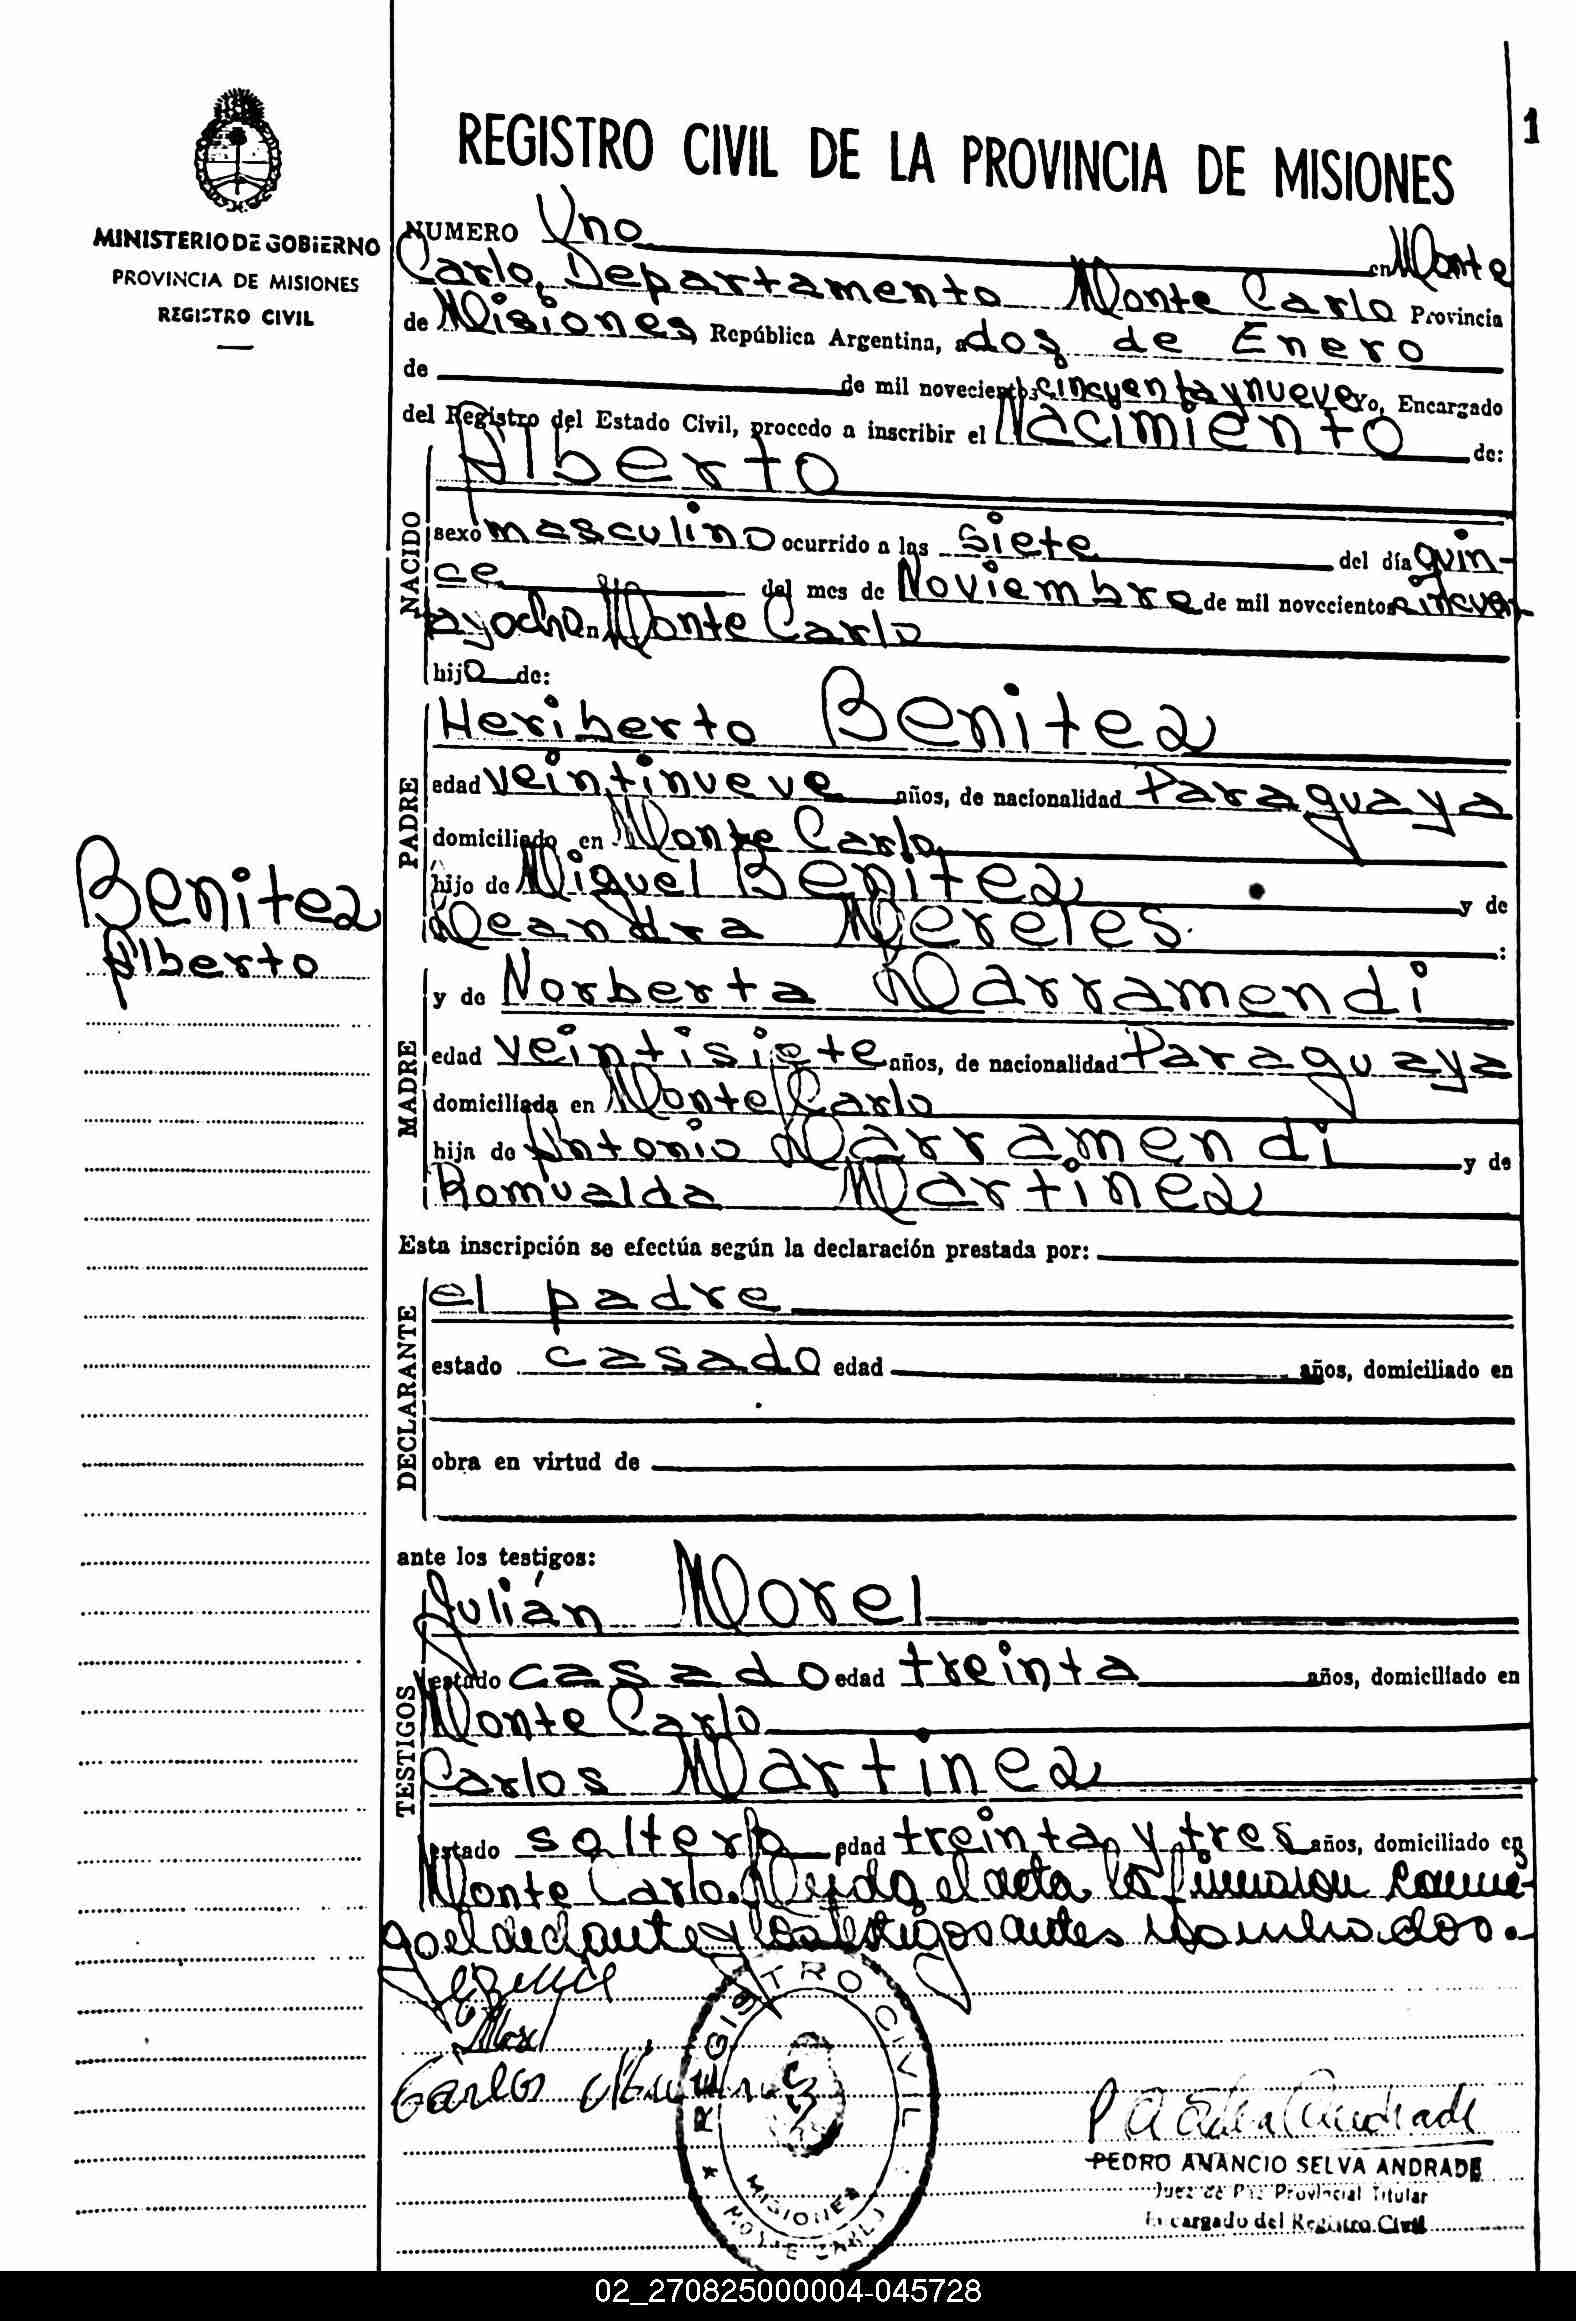 1
REGISTRO CIVIL DE LA PROVINCIA DE MISIONES
MINISTERIO DE GOBIERNO
PROVINCIA DE MISIONES
REGISTRO CIVIL
NUMERO Uno en Monte
Carlo, Departamento Monte Carlo Provincia
de Misiones República Argentina, a dos de Enero
de de mil novecientos cincuenta y nueve Yo, Encargado
del Registro del Estado Civil, procedo a inscribir el Nacimiento de:
NACIDO
Alberto
sexo masculino ocurrido a las siete del día quin-
ce del mes de Noviembre de mil novecientos cincuen
ta y ocho en Monte Carlo
hijo de:
PADRE
Heriberto Benitez
edad veintinueve años, de nacionalidad Paraguaya
domiciliado en Monte Carlo
hijo de Miguel Benitez y de
Leandra Mereles :
Benitez
Alberto
MADRE
y de Norberta Marramendi
edad veintisiete años, de nacionalidad Paraguaya
domiciliada en Monte Carlo
hija de Antonio Marramendi y de
Romualda Martinez
Esta inscripción se efectúa según la declaración prestada por:
DECLARANTE
el padre
estado casado edad años, domiciliado en
obra en virtud de
ante los testigos:
TESTIGOS
Julián Morel
estado casado edad treinta años, domiciliado en
Monte Carlo
Carlos Martinez
estado soltero edad treinta y tres años, domiciliado en
Monte Carlo. Leida el acta la firmaron conmi-
go el declarante y los testigos antes nombrados.
Morel
Carlos
REGISTRO CIVIL
MISIONES
MONTE CARLO
PEDRO ANANCIO SELVA ANDRADE
Juez de Paz Provincial Titular
Encargado del Registro Civil
02_270825000004-045728